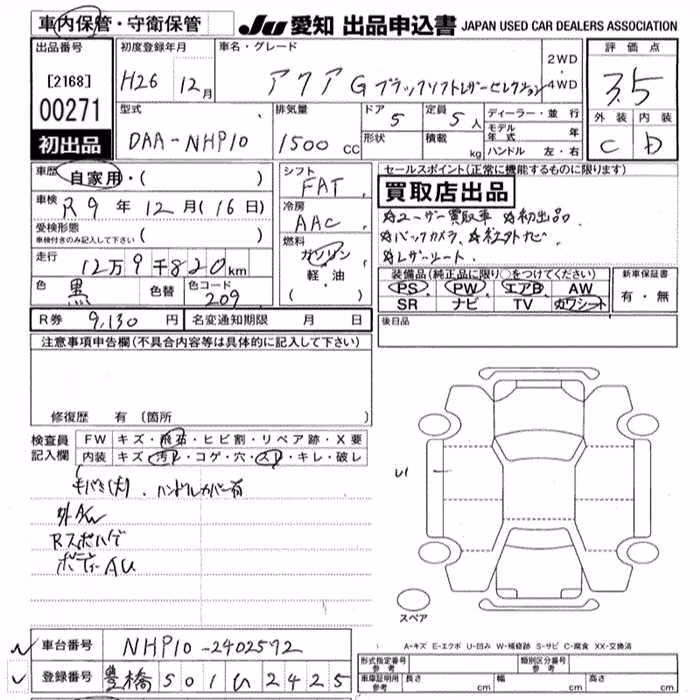 車内保管・守衛保管 JU 愛知 出品申込書 JAPAN USED CAR DEALERS ASSOCIATION
出品番号 初度登録年月 車名・グレード 評価点
[2168] H26 12月 アクア G ブラックソフトレザーセレクション 2WD・4WD 3.5
00271 型式 排気量 ドア 5 定員 5人 ディーラー・並行 外装 内装
初出品 DAA-NHP10 1500 CC 形状 積載 kg モデル年式 年 C D
ハンドル 左・右
車歴 自家用・( ) シフト FAT セールスポイント(正常に機能するものに限ります)
車検 R9年12月(16日) 冷房 AAC 買取店出品
受検形態 車検付きのみ記入して下さい ( ) 燃料 ☆ユーザー買取車 ☆初出品
走行 12万9千820km ガソリン ☆バックカメラ ☆社外ナビ
軽・油 ☆レザーシート
色 黒 色替 色コード 209 ( ) 装備品(純正品に限り○をつけてください) 新車保証書
PS PW エアB AW 有・無
SR ナビ TV カワシート
R券 9,130円 名変通知期限 月 日 後日品
注意事項申告欄(不具合内容等は具体的に記入して下さい)
修復歴 有 (箇所 )
検査員記入欄 FW キズ・飛石・ヒビ割・リペア跡・X要
内装 キズ・汚レ・コゲ・穴・スレ・キレ・破レ
キバキ(大)、ハンドルカバー有
外A/W
Rスポハゲ
ボディーAU
U1
スペア
A-キズ E-エクボ U-凹み W-補修跡 S-サビ C-腐食 XX-交換済
車台番号 NHP10-2402572
登録番号 豊橋 501 い 2425
形式指定番号 参考 類別区分番号 参考
車庫証明用 参考 長さ cm 幅 cm 高さ cm